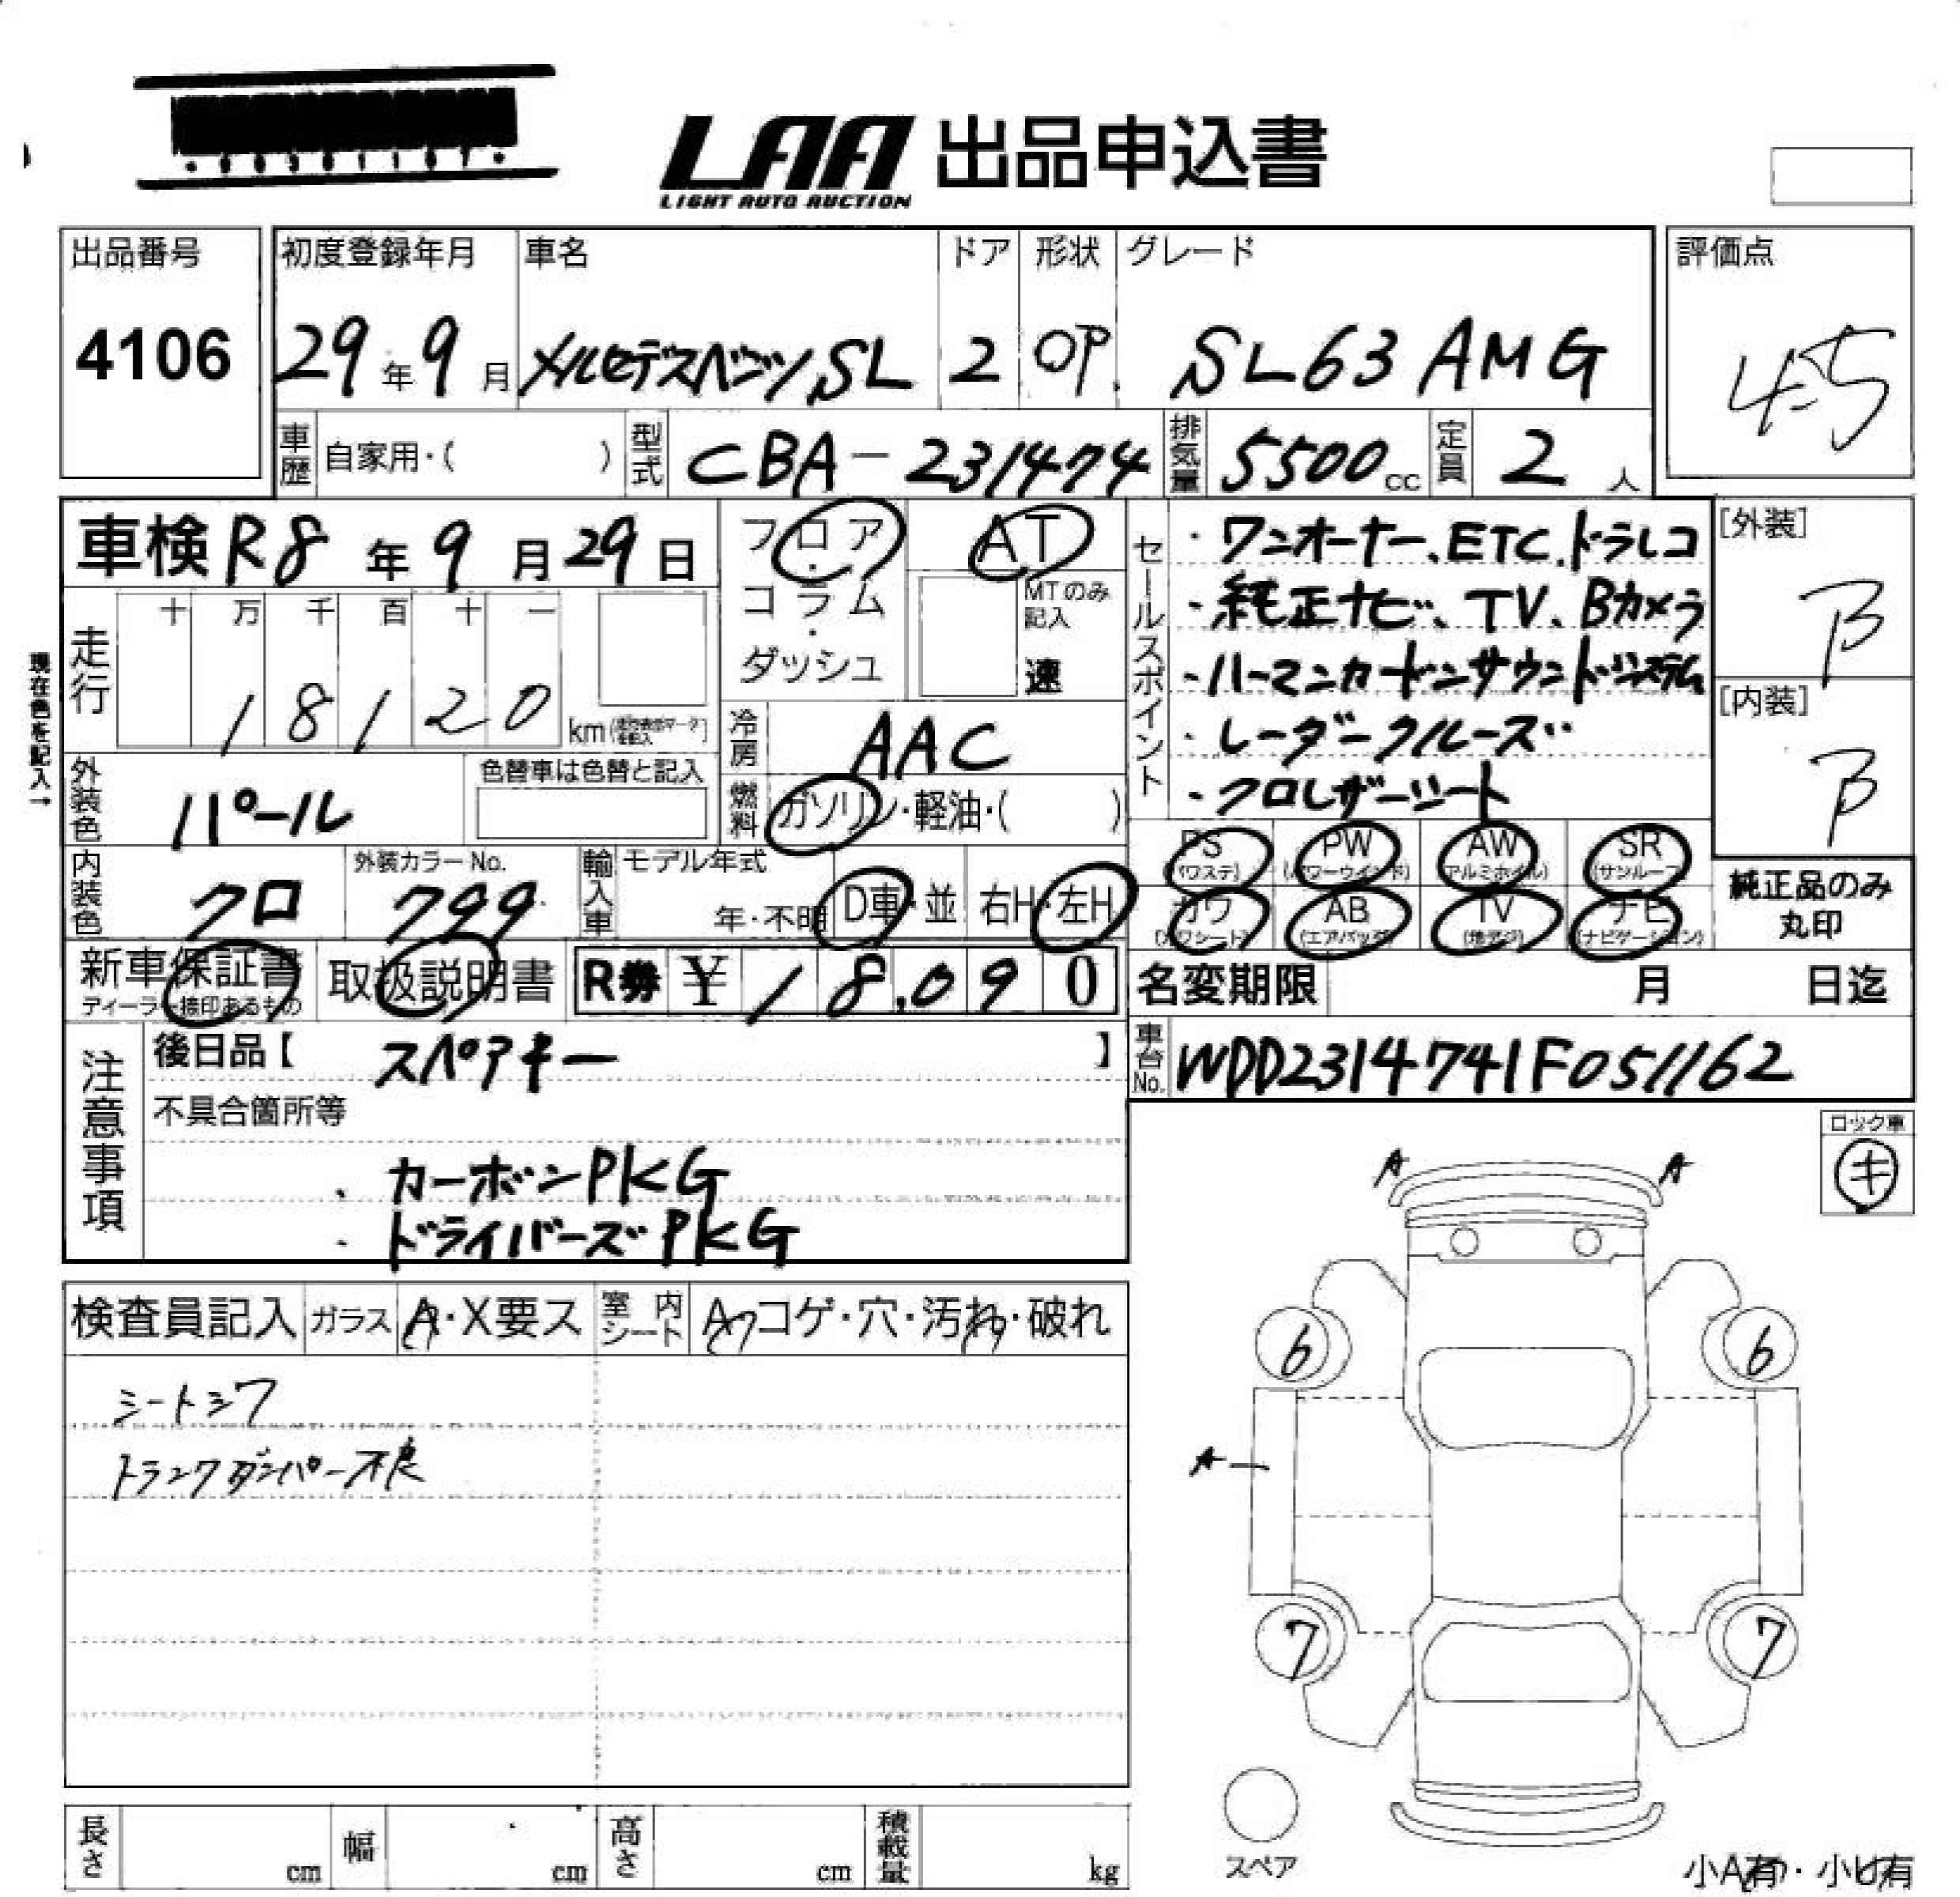 LAA 出品申込書
LIGHT AUTO AUCTION
出品番号
4106
初度登録年月
29年9月
車名
メルセデスベンツSL
ドア
2
形状
OP
グレード
SL63 AMG
評価点
4.5
車歴
自家用・( )
型式
CBA-231474
排気量
5500cc
定員
2人
車検 R8年9月29日
フロア・コラム・ダッシュ
AT
MTのみ記入
速
セールスポイント
・ワンオーナー、ETC、ドラレコ
・純正ナビ、TV、Bカメラ
・ハーマンカードンサウンドシステム
・レーダークルーズ
・クロレザーシート
[外装]
B
[内装]
B
現在色を記入→
走行
十 万 千 百 十 一
18120
km
冷房
AAC
外装色
パール
色替車は色替と記入
燃料
ガソリン・軽油・( )
PS (パワステ)
PW (パワーウインド)
AW (アルミホイル)
SR (サンルーフ)
内装色
クロ
外装カラーNo.
799
輸入車
モデル年式
年・不明
D車・並
右H・左H
カワ (カワシート)
AB (エアバッグ)
TV (地デジ)
ナビ (ナビゲーション)
純正品のみ
丸印
新車保証書
ディーラー捺印あるもの
取扱説明書
R券 ¥18,090
名変期限 月 日迄
注意事項
後日品【 スペアキー 】
車台No.
WDD2314741F051162
不具合箇所等
・カーボンPKG
・ドライバーズPKG
ロック車
キ
A A
検査員記入
ガラス
A・X要ス
室内シート
コゲ・穴・汚れ・破れ
シートシワ
トランクダンパー不良
6 6
A
7 7
スペア
長さ cm
幅 cm
高さ cm
積載量 kg
小A有・小U有